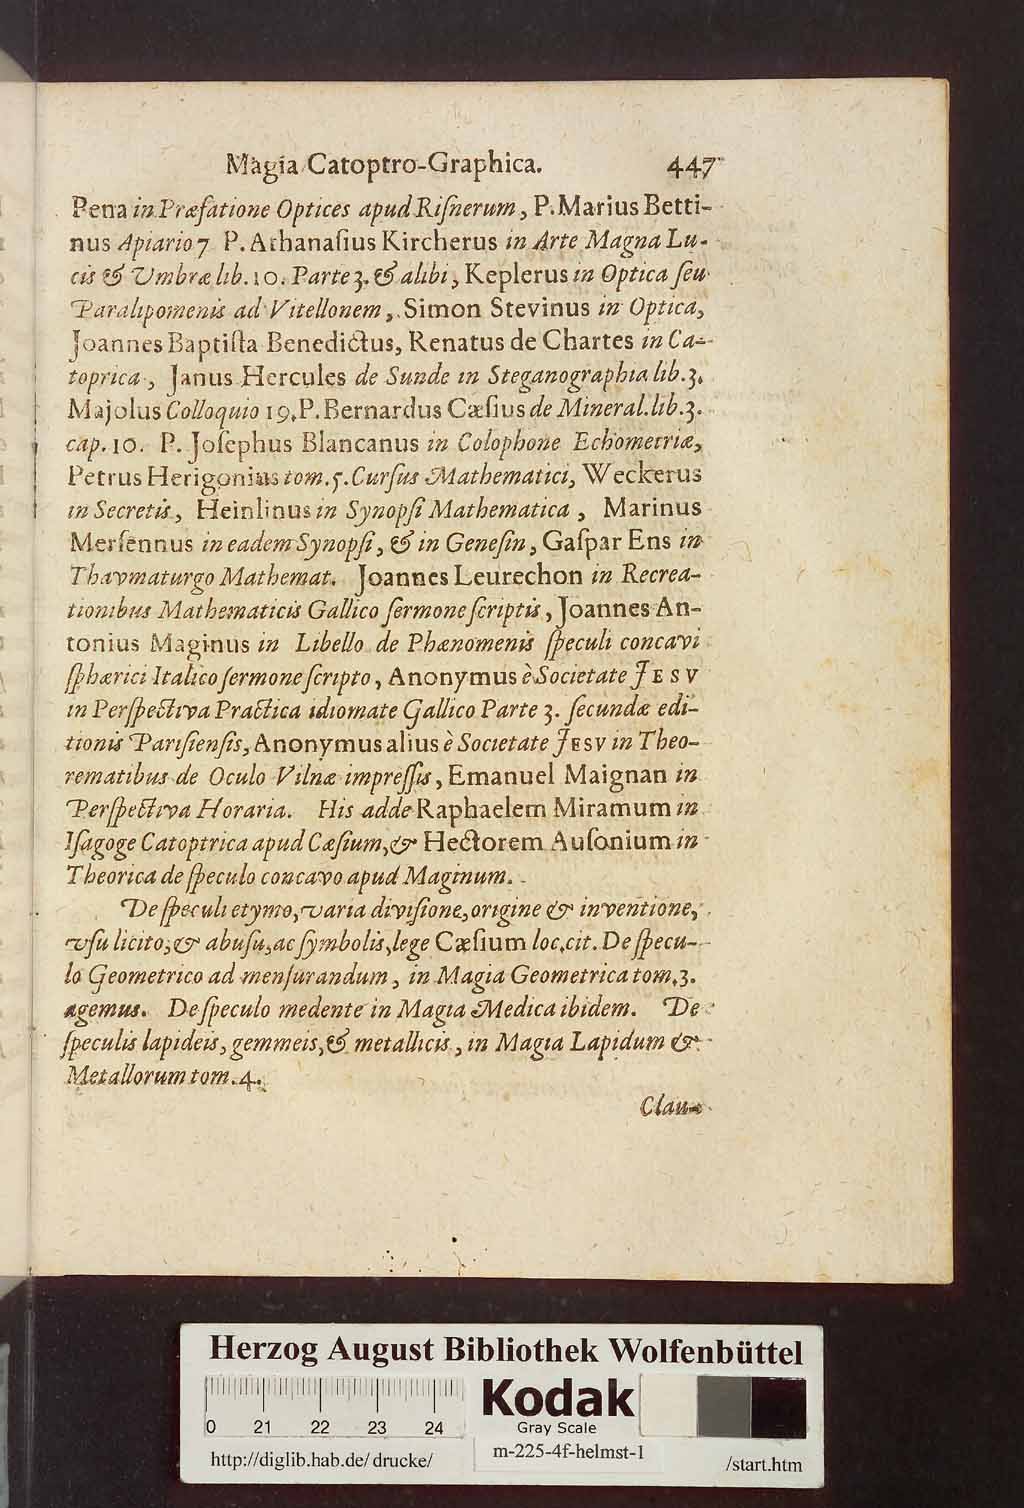 Magia Catoptro-Graphica. 447
Pena in Præfatione Optices apud Riſnerum, P. Marius Betti-
nus Apiario 7 P. Athanaſius Kircherus in Arte Magna Lu-
cis & Umbræ lib. 10. Parte 3. & alibi, Keplerus in Optica ſeu
Paralipomenis ad Vitellonem, Simon Stevinus in Optica,
Joannes Baptiſta Benedictus, Renatus de Chartes in Ca-
toprica, Janus Hercules de Sunde in Steganographia lib. 3.
Majolus Colloquio 19. P. Bernardus Cæſius de Mineral. lib. 3.
cap. 10. P. Joſephus Blancanus in Colophone Echometriæ,
Petrus Herigonius tom. 5. Curſus Mathematici, Weckerus
in Secretis, Heinlinus in Synopſi Mathematica, Marinus
Merſennus in eadem Synopſi, & in Geneſin, Gaſpar Ens in
Thavmaturgo Mathemat. Joannes Leurechon in Recrea-
tionibus Mathematicis Gallico ſermone ſcriptis, Joannes An-
tonius Maginus in Libello de Phænomenis ſpeculi concavi
ſphærici Italico ſermone ſcripto, Anonymus è Societate JESV
in Perſpectiva Practica idiomate Gallico Parte 3. ſecundæ edi-
tionis Pariſienſis, Anonymus alius è Societate JESV in Theo-
rematibus de Oculo Vilnæ impreſſis, Emanuel Maignan in
Perſpectiva Horaria. His adde Raphaelem Miramum in
Iſagoge Catoptrica apud Cæſium, & Hectorem Auſonium in
Theorica de ſpeculo concavo apud Maginum.
De ſpeculi etymo, varia diviſione, origine & inventione,
vſu licito, & abuſu, ac ſymbolis, lege Cæſium loc. cit. De ſpecu-
lo Geometrico ad menſurandum, in Magia Geometrica tom. 3.
agemus. De ſpeculo medente in Magia Medica ibidem. De
ſpeculis lapideis, gemmeis, & metallicis, in Magia Lapidum &
Metallorum tom. 4.
Clau-
Herzog August Bibliothek Wolfenbüttel
0 21 22 23 24
Kodak
Gray Scale
http://diglib.hab.de/drucke/
m-225-4f-helmst-1
/start.htm